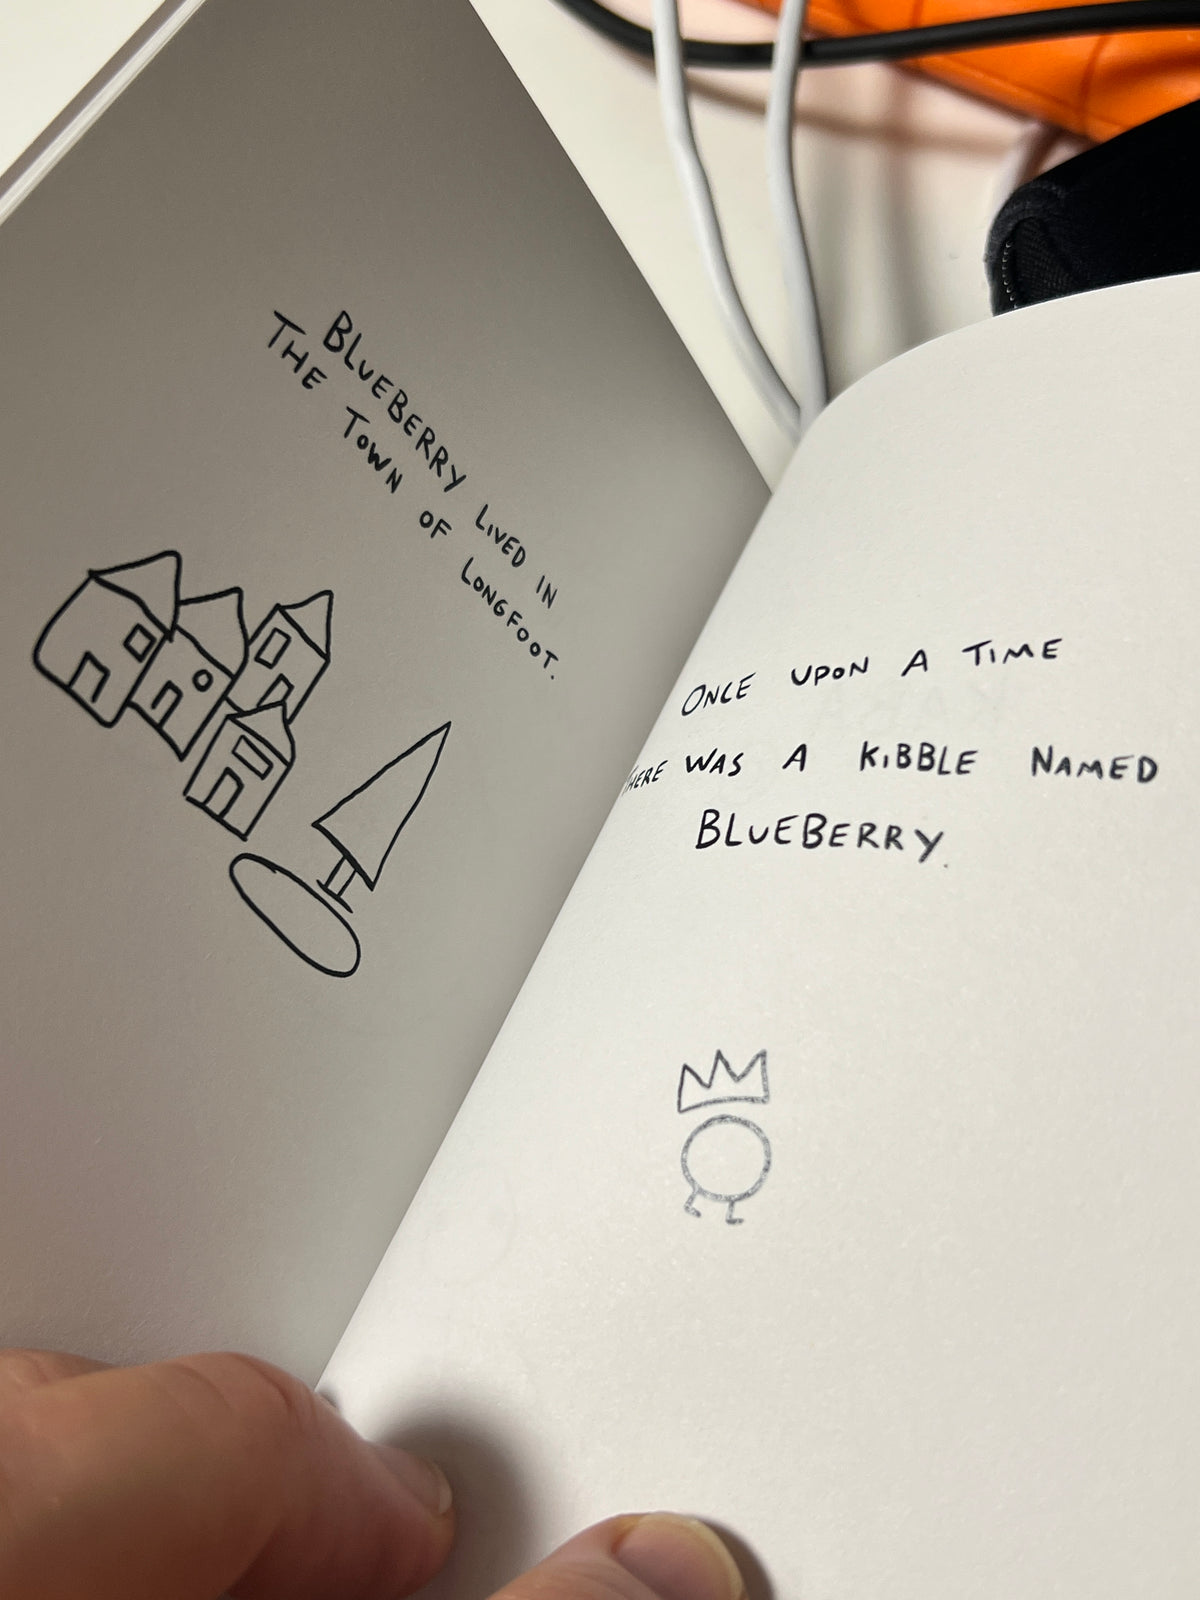 BLUEBERRY LIVED IN
THE TOWN OF LONGFOOT.
ONCE UPON A TIME
THERE WAS A KIBBLE NAMED
BLUEBERRY.